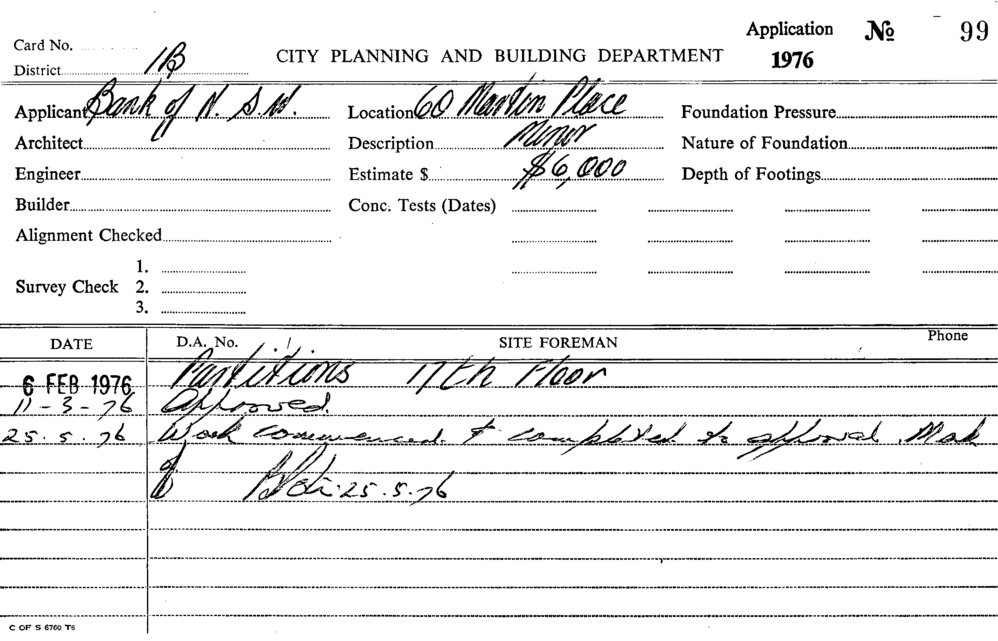 Application No 99
Card No.
1976
District 1B
CITY PLANNING AND BUILDING DEPARTMENT
Applicant Bank of N. S.W. Location 60 Martin Place Foundation Pressure
Architect Description Minor Nature of Foundation
Engineer Estimate $ $6,000 Depth of Footings
Builder Conc. Tests (Dates)
Alignment Checked
1.
Survey Check 2.
3.
DATE D.A. No. SITE FOREMAN Phone
6 FEB 1976 Partitions 17th Floor
11-3-76 Approved.
25.5.76 Work commenced & completed to approval.
25.5.76
C OF S 6760 T6